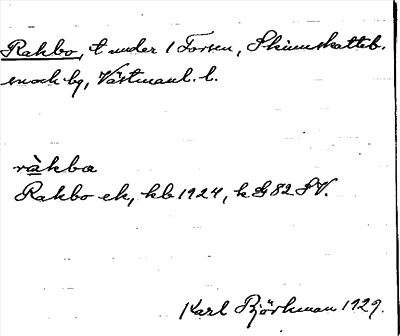 Rakbo, t under 1 Forsen, Skinnskatteb.
snock-bg, Västmanl. l.
ràkba
Rakbo ek, kb 1924, k G 82 SV.
Karl Björkman 1929.